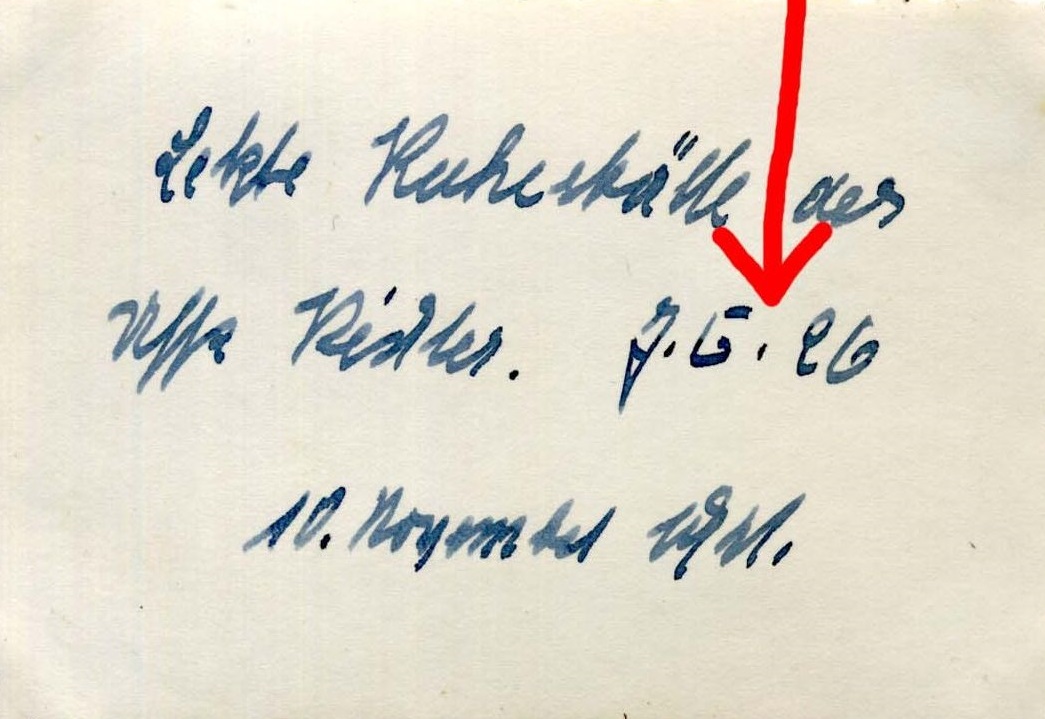 Letzte Ruhestätte des
Uffz Riedler. J.G. 26
10. November 1941.